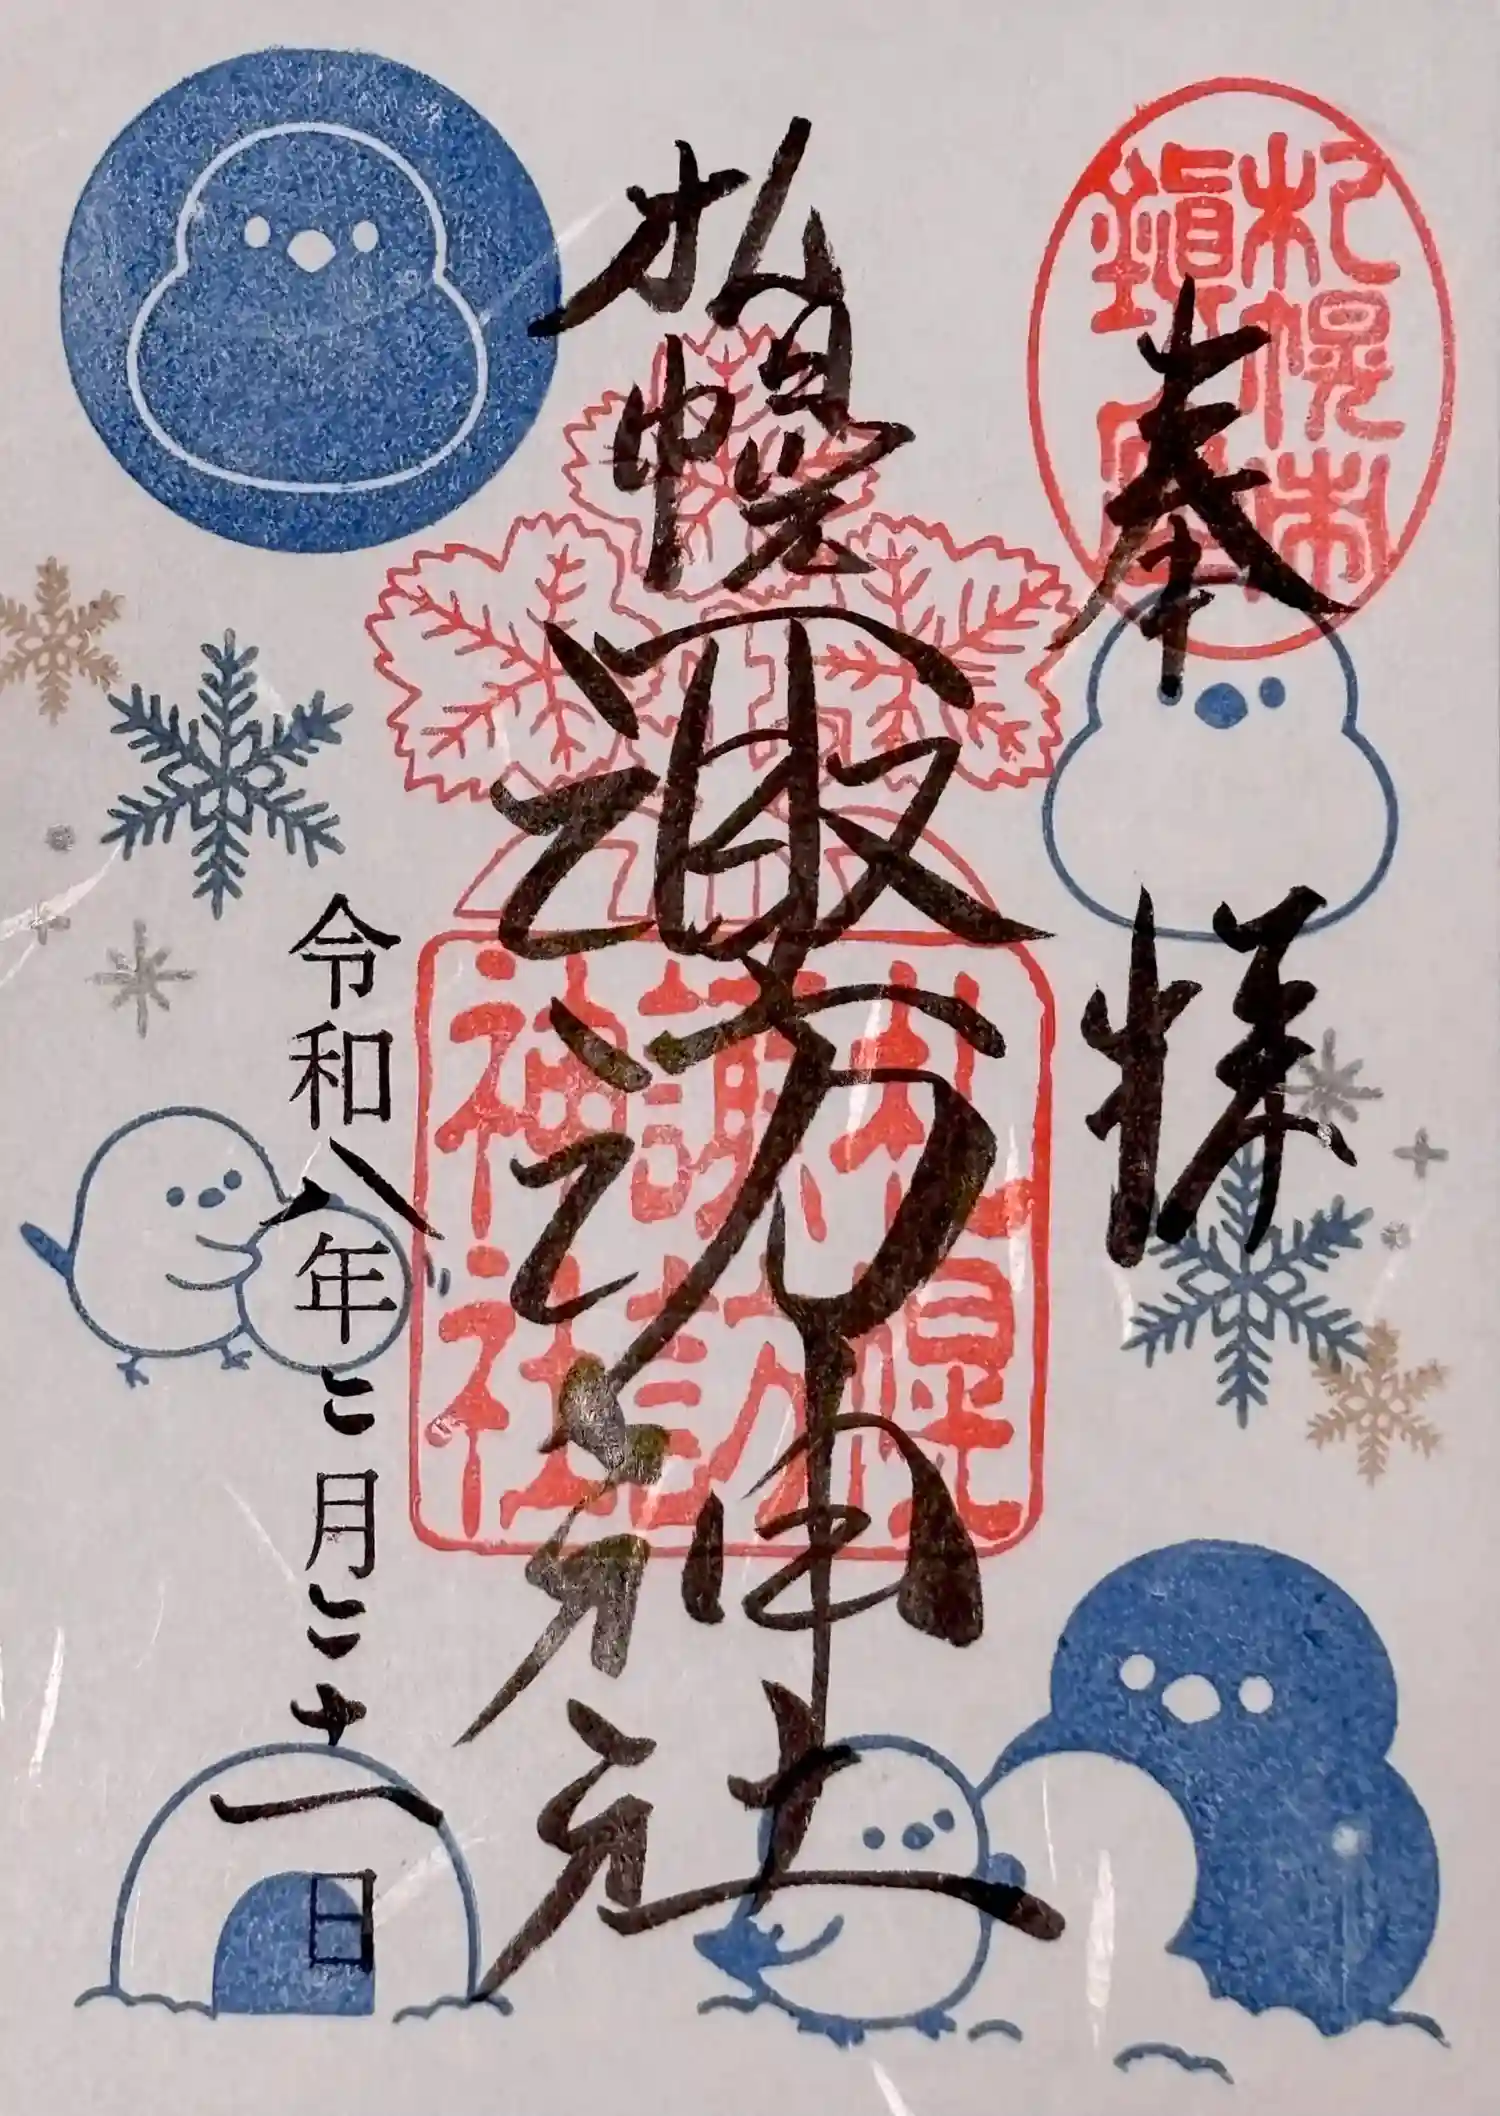 札幌市
鎮座
奉拝
札幌諏訪神社
札幌
諏訪
神社
令和八年二月二十一日